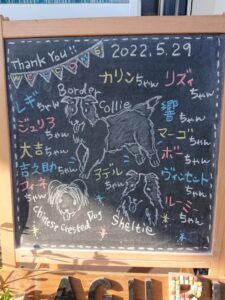 Thank You!!
2022.5.29
カリンちゃん
リズィちゃん
Border Collie
レギちゃん
響ちゃん
ジュリアちゃん
マーゴちゃん
大吉ちゃん
ボーちゃん
吉久助ちゃん
アデルちゃん
ヴィンセントちゃん
ちゃん
ルーミィちゃん
Chinese Crested Dog
Sheltie